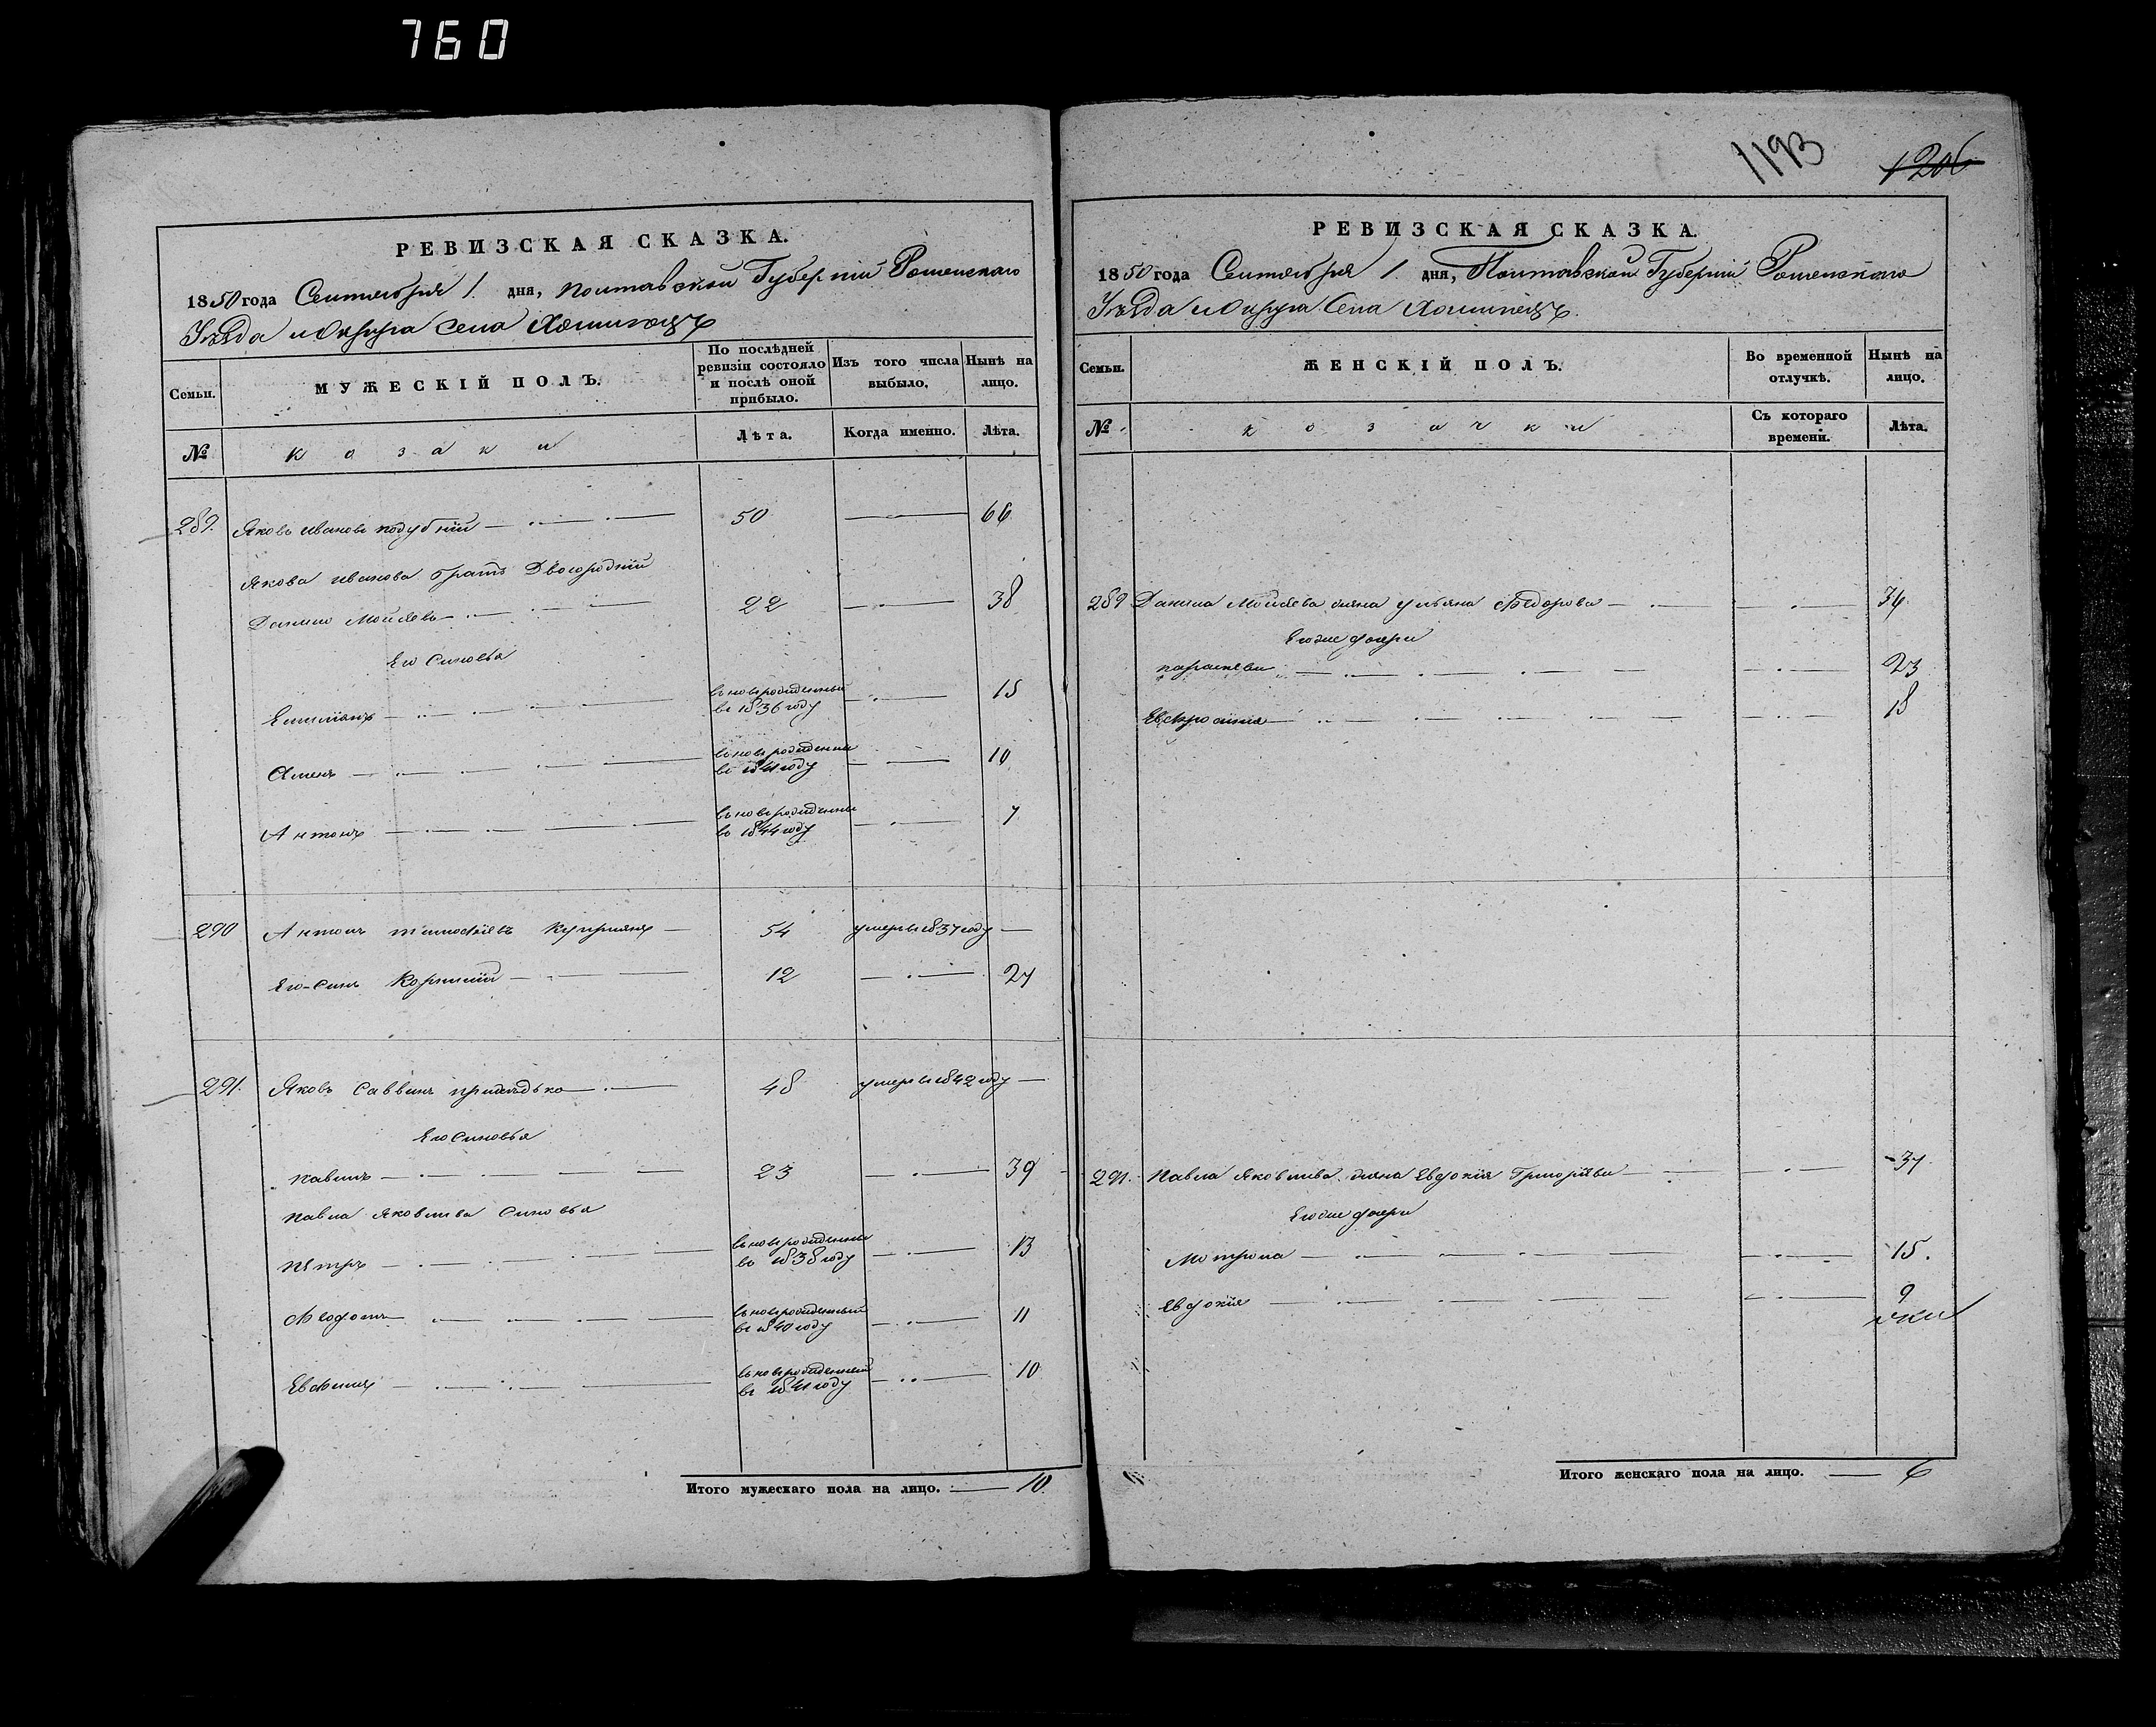 760
1193
1206
РЕВИЗСКАЯ СКАЗКА.
1850 года Сентября 1. дня, Полтавской Губерніи Роменскаго
Уезда и Округа Села Хоминець
Семьи.
МУЖЕСКІЙ ПОЛЪ.
По послѣдней ревизіи состояло и послѣ оной прибыло.
Изъ того числа выбыло.
Нынѣ на лицо.
№
козаки
Лѣта.
Когда именно.
Лѣта.
289. Яковъ Ивановъ Подубній 50 66
Якова Иванова братъ Двоюродній
Данило Мойсѣевъ 22 38
Его Синовья
Емилианъ вьновърожденный въ 1836 году 15
вьновърожденни въ 1841 году 10
Антонъ вьновърожденни въ 1844 году 7
290 Антонъ Тимофѣевъ Куприянъ 54 умеръ въ 1837 году
Его-Синъ Корнилій 12 27
291. Яковъ Саввинъ 48 умеръ въ 1842 году
Его Синовья
Павелъ 23 39
Павла Яковлева Синовья
Петръ вьновърожденни въ 1838 году 13
Федотъ вьновърожденный въ 1840 году 11
Евфимъ вьновърожденный въ 1841 году 10
Итого мужескаго пола на лицо. 10.
РЕВИЗСКАЯ СКАЗКА.
1850 года Сентября 1. дня, Полтавской Губерніи Роменскаго
Уезда и Округа Села Хоминець.
Семьи.
ЖЕНСКІЙ ПОЛЪ.
Во временной отлучкѣ.
Нынѣ на лицо.
№
козачки
Съ котораго времени.
Лѣта.
289 Данила Мойсѣева жена Ульяна Федорова 36
Егоже дочери
Параскева 23
Евфросиния 18
291. Павла Яковлева жена Евдокія Григоріева 37
Егоже дочери
Мотрона 15.
Евдокія 9
Итого женскаго пола на лицо. 6